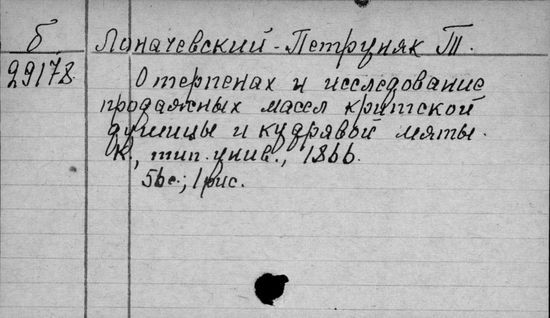 б Лоначевский-Петруняк Т.
29178 О терпенах и исследование
продажных массл критской
душицы и кудрявой мяты.
К., тип. унив., 1866.
56 с.; 1 рис.